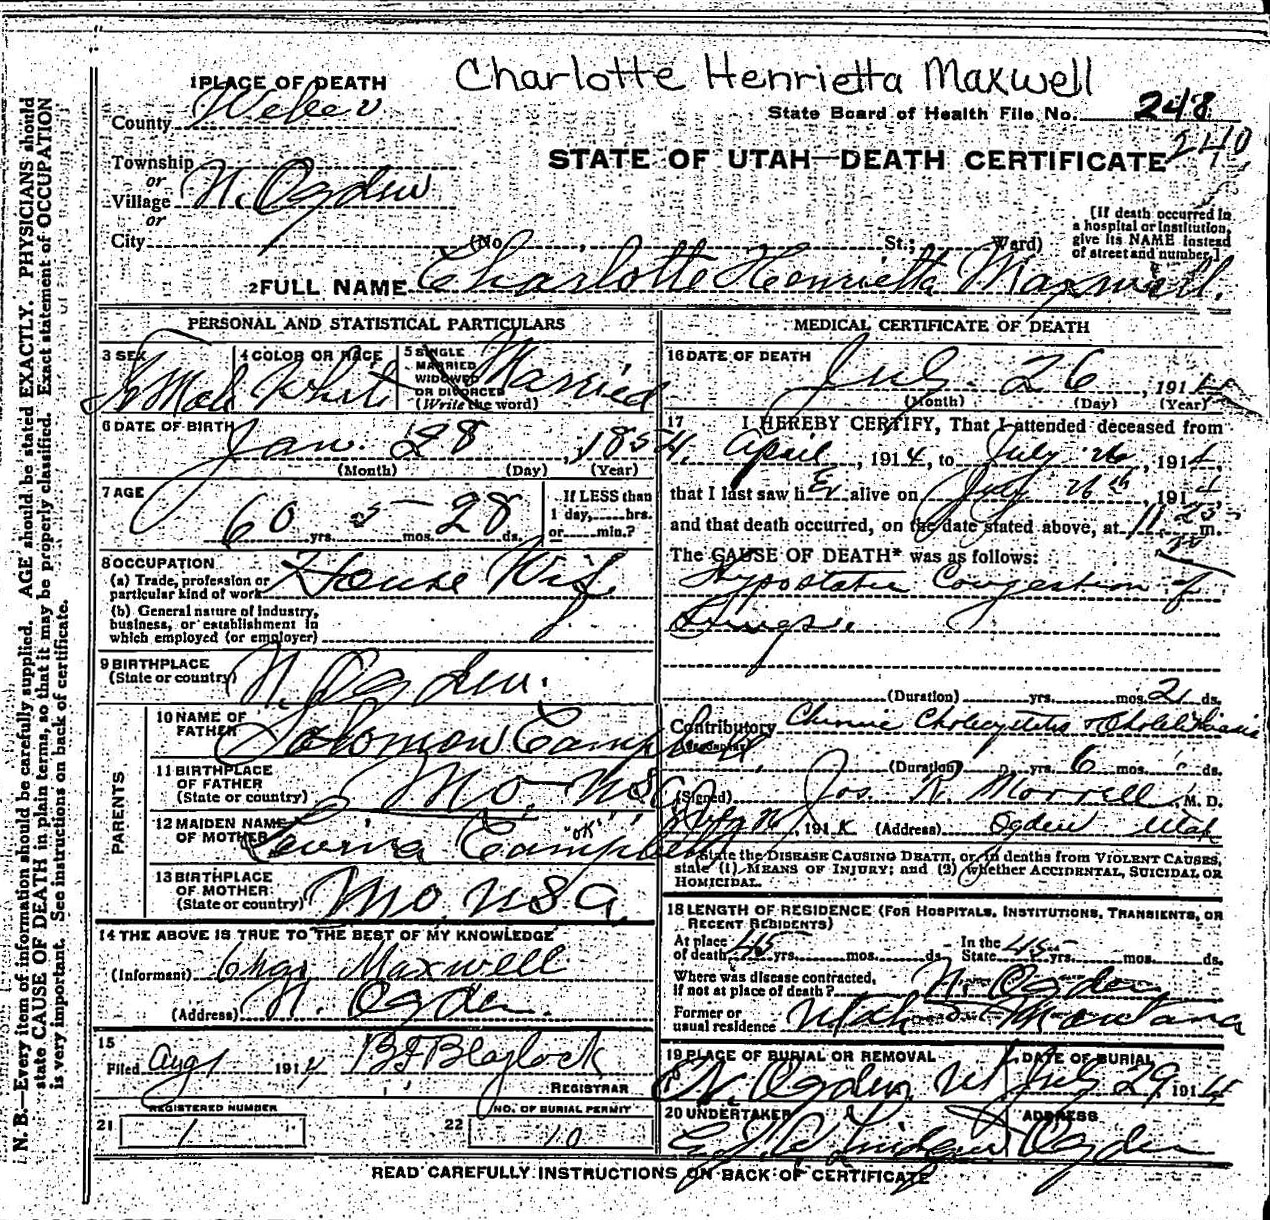 Charlotte Henrietta Maxwell
1 PLACE OF DEATH
County Weber
State Board of Health File No. 248
240
STATE OF UTAH—DEATH CERTIFICATE
Township
or
Village N. Ogden
or
City (No. , St.; Ward)
[If death occurred in
a hospital or institution,
give its NAME instead
of street and number.]
2 FULL NAME Charlotte Henrietta Maxwell.
PERSONAL AND STATISTICAL PARTICULARS
3 SEX
4 COLOR OR RACE White
5 SINGLE
MARRIED
WIDOWED
OR DIVORCED
(Write the word)
Married
6 DATE OF BIRTH Jan. 28, 1854.
(Month) (Day) (Year)
7 AGE
60 yrs. 5 mos. 28 ds.
If LESS than
1 day, hrs.
or min.?
8 OCCUPATION
(a) Trade, profession or
particular kind of work House Wife
(b) General nature of industry,
business, or establishment in
which employed (or employer)
9 BIRTHPLACE
(State or country) N. Ogden.
PARENTS
10 NAME OF
FATHER Solomon Campbell
11 BIRTHPLACE
OF FATHER
(State or country) Mo. USA
12 MAIDEN NAME
OF MOTHER Campbell
"OK"
13 BIRTHPLACE
OF MOTHER
(State or country) Mo. USA.
14 THE ABOVE IS TRUE TO THE BEST OF MY KNOWLEDGE
(Informant) Chas Maxwell
(Address) N. Ogden.
15
Filed Aug 1 1914 B F Blaylock
REGISTRAR
REGISTERED NUMBER
21 1
NO. OF BURIAL PERMIT
22 10
MEDICAL CERTIFICATE OF DEATH
16 DATE OF DEATH July 26, 1914
(Month) (Day) (Year)
17 I HEREBY CERTIFY, That I attended deceased from
April, 1914, to July 26, 1914,
that I last saw her alive on July 26th, 1914,
and that death occurred, on the date stated above, at 11 m.
The CAUSE OF DEATH* was as follows:
Hypostatic Congestion of
Lungs.
(Duration) yrs. mos. 2 ds.
Contributory Chronic Cholecystitis & Cholelithiasis
(Secondary)
(Duration) yrs. 6 mos. ds.
(Signed) Jos. R. Morrell, M. D.
191 (Address) Ogden Utah
*State the DISEASE CAUSING DEATH, or, in deaths from VIOLENT CAUSES,
state (1) MEANS OF INJURY; and (2) whether ACCIDENTAL, SUICIDAL OR
HOMICIDAL.
18 LENGTH OF RESIDENCE (FOR HOSPITALS, INSTITUTIONS, TRANSIENTS, OR
RECENT RESIDENTS)
At place
of death 45 yrs. mos. ds.
In the
State 45 yrs. mos. ds.
Where was disease contracted,
if not at place of death? N. Ogden
Former or
usual residence Utah & Montana
19 PLACE OF BURIAL OR REMOVAL
N. Ogden, Ut
DATE OF BURIAL
July 29, 1914
20 UNDERTAKER
ADDRESS
Ogden
READ CAREFULLY INSTRUCTIONS ON BACK OF CERTIFICATE
N. B.—Every item of information should be carefully supplied. AGE should be stated EXACTLY. PHYSICIANS should
state CAUSE OF DEATH in plain terms, so that it may be properly classified. Exact statement of OCCUPATION
is very important. See instructions on back of certificate.